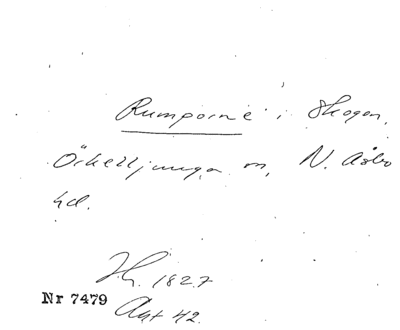 Rumporne i Skogen,
Örkelljunga sn, N. Åsbo
hd.
Jh. 1827
Nr 7479
Akt 42.